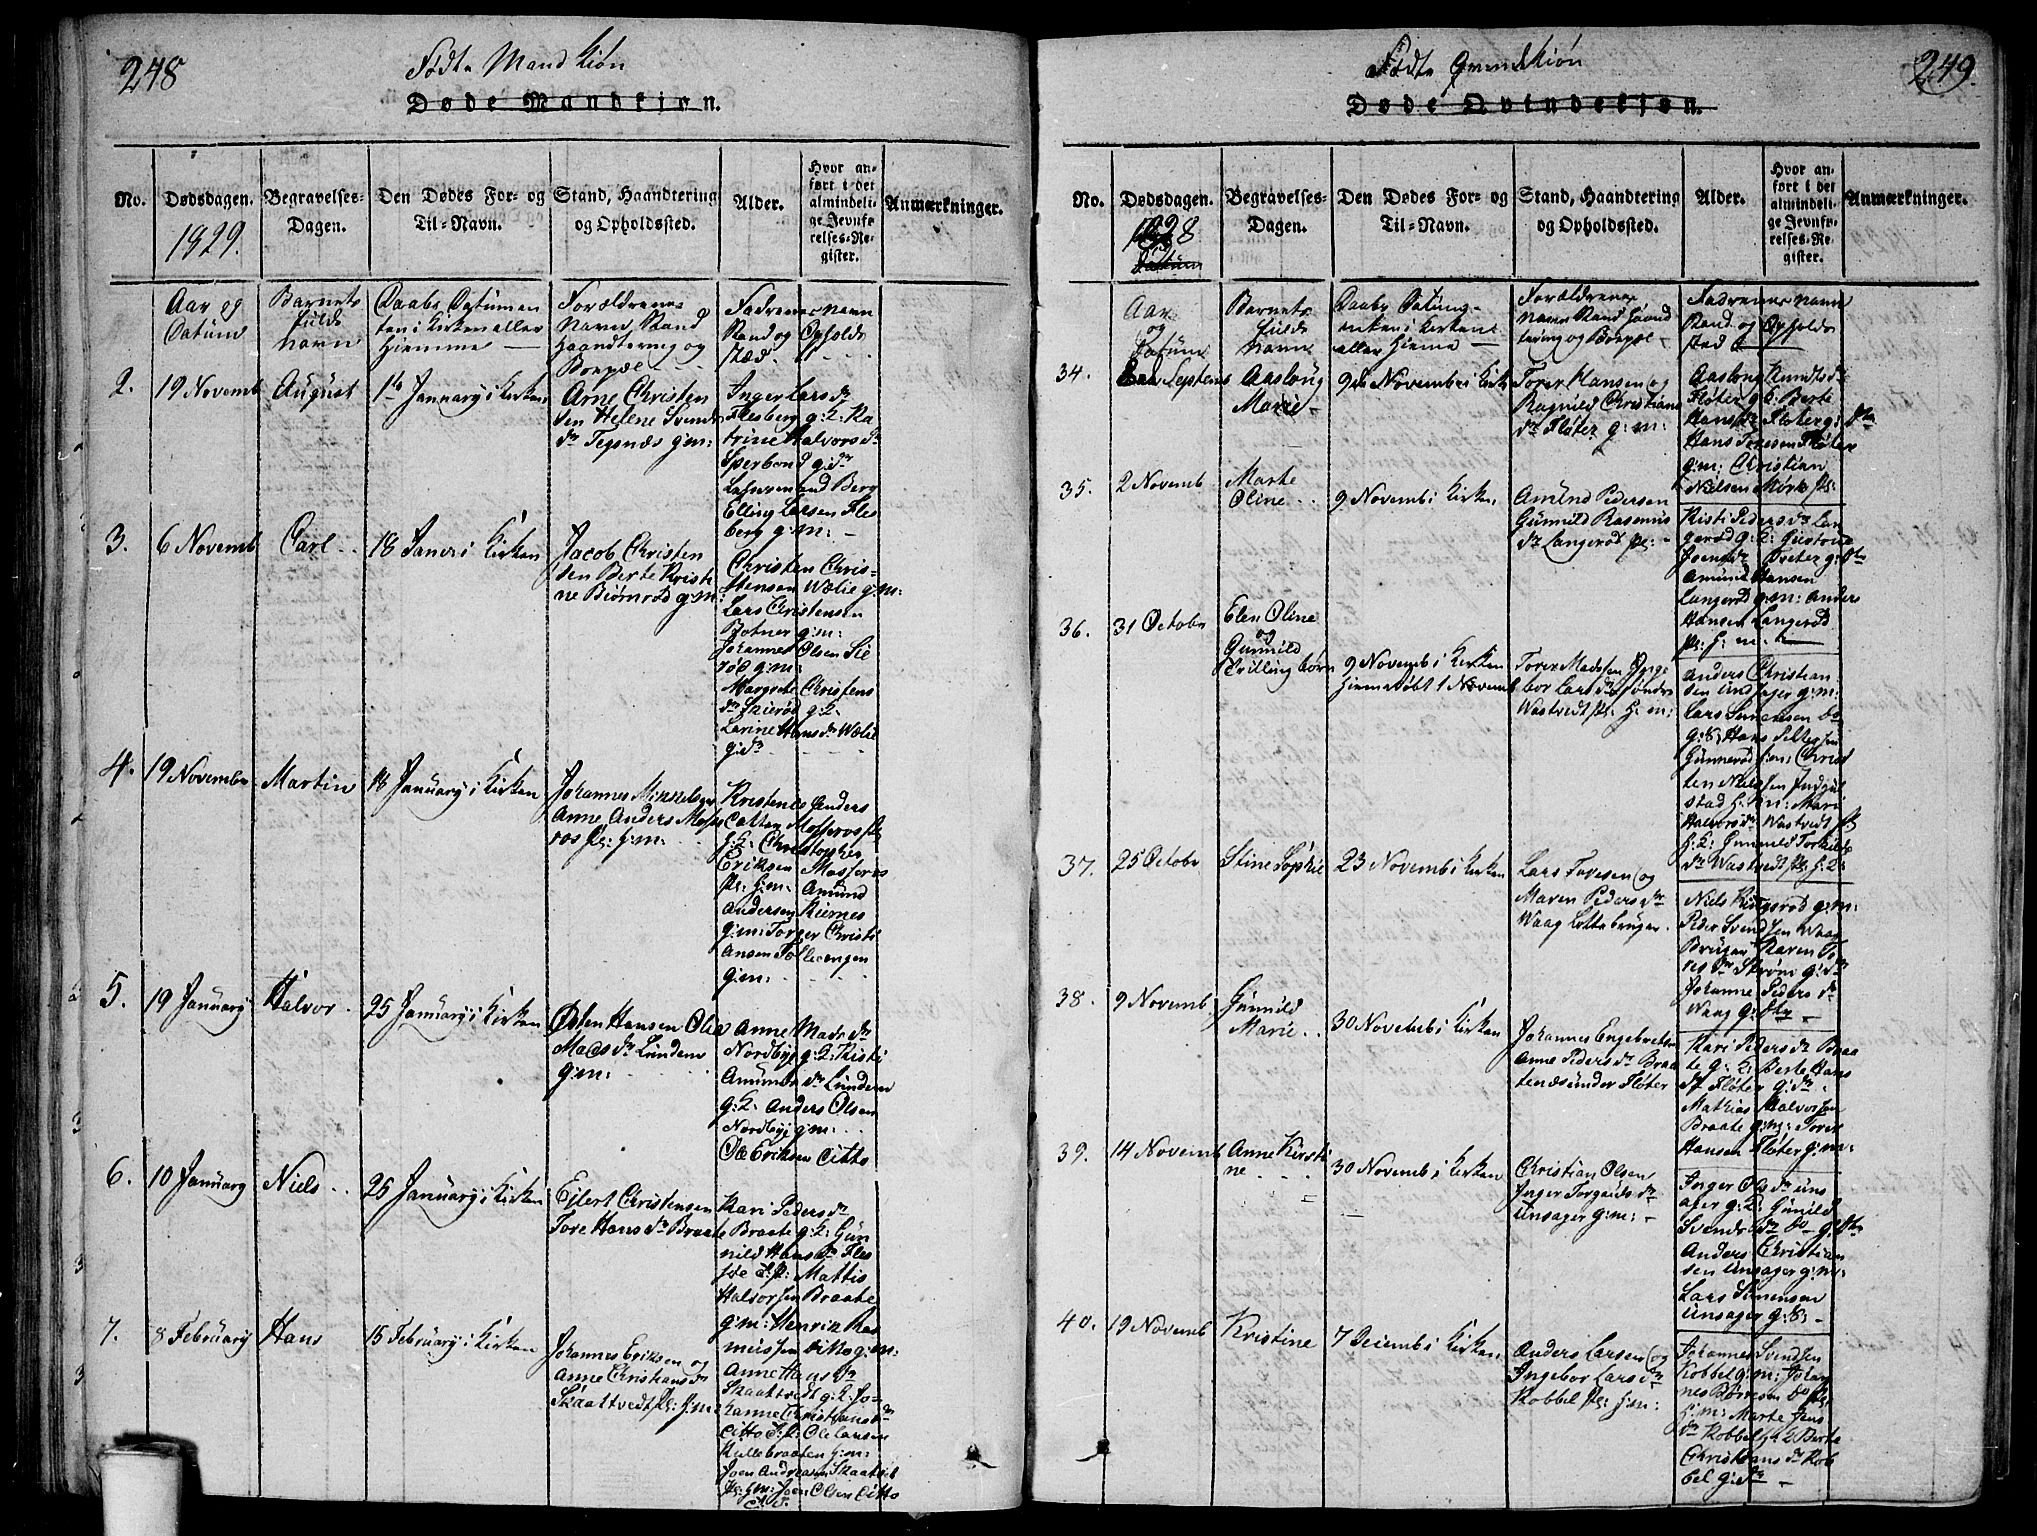 248
Fødte Mandkiøn
Døde Mandkjøn.
No.
Dødsdagen.
1829.
Begravelses-
Dagen.
Den Dødes For- og
Til-Navn.
Stand, Haandtering
og Opholdssted.
Alder.
Hvor an-
ført i det
almindeli-
ge Jevnfø-
relses-Re-
gister.
Anmærkninger.
Aar og
Datum
Barnets
fulde
Navn
Daabs Datumen
ten i Kirken eller
Hiemme
Forældrenes
Navn, Stand
Haandtering og
Bopæl
Faddernes Navn
Stand og Opholds
stæd
2.
19 Novemb
August
1te January i Kirken
Arne Christen
sen Helene Svends
dr Tegsnæs g:m:
Inger Lars dr
Flesberg g:k: Ka
trine Halvors dr
Sperbond g:dr
Berg
Elling Larsen Fles
berg g:m:
3.
6 Novemb
Carl
18 Januar i Kirken
Jacob Christen
sen Berte Kristi
ne Biørnrød g:m:
Christen Chris-
tensen Wælie g:m:
Lars Christensen
Botner g:m:
Johannes Olsen Sie
rød g:m:
Margrete Christens
dr Skierød g:k:
Larine Hans dr Wælie
g:dr
4.
19 November
Martin
18 January i Kirken
Johannes Mikkelsen
Anne Anders Moss
ros pl: h:m:
Kristense Anders
Catten Mosseros pl
h:k: Christopher
Eriksen Mosseros
pl: h:m: Amund
Andersen Kiernes
g:m: Torger Christi
ansen Follevangen
g:m:
5.
19 January
Halvor
25 January i Kirken
Osten Hansen Olia
Mads dr Lundern
g:m:
Anne Mads dr
Nordbye g:k: Kisti
Amunds dr Lundern
g:k: Anders Olsen
Nordbye g:m:
Ole Eriksen Titto
6.
10 January
Niels
25 January i Kirken
Ejlert Christensen
Tore Hans dr Braate
Kari Peders dr
Braate g:k: Gun
nild Hans dr Fles
Mattis
Halvorsen Braate
g:m: Henrik Ras
mussen g:m:
7.
8 February
Hans
15 February i Kirken
Johannes Eriksen og
Anne Christians dr
Skaattvedt pl: h:m:
Anne Hans dr
Skaattvedt g:k: Jo-
hanne Christians dr
Titto Ole Larsen
Kullebraaten h:m:
Joen Andreasen Skaatvet
pl: h:m: Joen Olsen Titto
249.
Fødte Qvindkiøn
Døde Qvindekjøn.
No.
Dødsdagen.
1828
Datum
Begravelses-
Dagen.
Den Dødes For- og
Til-Navn.
Stand, Haandtering
og Opholdssted.
Alder.
Hvor an-
ført i det
almindeli-
ge Jevnfø-
relses-Re-
gister.
Anmærkninger.
Aar
og
Datum
Barnets
fulde
Navn
Daabs Datum
enten i Kirken
eller Hiemme
Forældrenes
Navn Stand Haand
tering og Bopæl
Faddernes Navn
Stand og Opholds
sted
34.
Septemb
Aaslaug
Marie
9de November i Kirk
Torer Hansen og
Ragnild Christians
dr Fløter g:m:
Aaslaug Knudts dr
Fløter g:k: Berte
Hans dr Fløter g: dtr
Hans Toresen Fløter
g:m: Christian
Nilsen Mørk pl:
35.
2 Novemb
Marte
Oline
9 Novemb i Kirken
Amund Pedersen
Gunnild Rasmus
dr Langerød pl:
Kisti Peders dr Lan
gerød g:k: Gustava
Joens dr Treter g: dtr
Amund Hansen
Langerød g:m: Anders
Hansen Langerød
pl: h: m:
36.
31 Octobr
Elen Oline
og
Gunnild
Tvillingbørn
9 Novemb i Kirken
Hiemmedøbt 1 Novemb
Torer Madsen Inge
bor Lars dr Søndre
Wastvedt pl: h: m:
Anders Christian
sen Undsager g:m:
Lars Simensen do
g:S: Hans
Gunnerød h:m: Christ
ten Nielsen
stad h: m: Mari
Halvors dr Wastvedt pl
h:k: Gunnild Torkilds
dr Wastvedt pl: h:k:
37.
25 Octobr
Stine Sophie
23 Novemb i Kirken
Lars Toresen og
Maren Peders dr
Waag Lottebruger
Niels Ringsrød g:m:
Peder Svendsen Waag
Bruger Karen To
res dr Strøm g:dr
Johanne Peders dr
Waag g: dtr
38.
9 Novemb
Gunnild
Marie
30 Novemb i Kirken
Johannes Engebretsen
Anne Peders dr Braa
tenæs under Fløter
Kari Peders dr Braa
te g:k: Berte Hans
dr Fløter g:dr
Mathias Halvorsen
Braate g:m: Torer
Hansen Fløter g:m:
39.
14 Novemb
Anne Kirsti
ne
30 Novemb i Kirken
Christian Olsen
Inger Torgauts dr
Unsager g:m:
Inger Ols dr Uns
ager g:k: Gunild
Svends dr do g: dtr
Anders Christian
sen Unsager g:m:
Lars Simensen
Unsager g:S:
40.
19 Novemb
Kristine
7 Decemb i Kirken
Anders Larsen og
Ingebor Lars dr
Kobbel pl: h:m:
Johannes Svendsen
Kobbel g:m: Johan
nes Børresen do pl:
h:m: Marte Jens
dr Kobbel h:k Berte
Christians dr Kob
bel g:dr